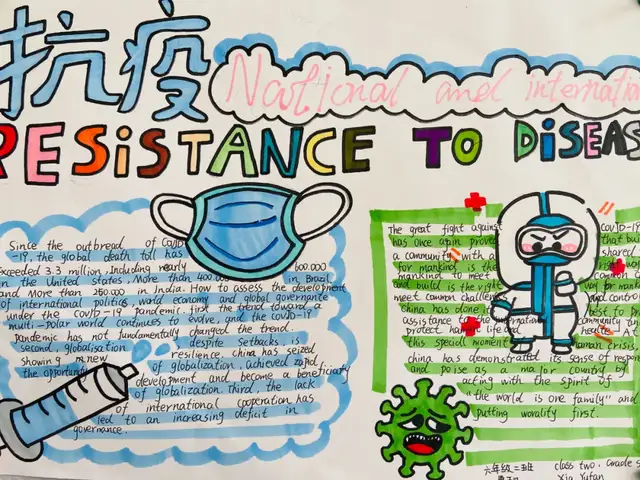 抗疫
National and internationa
RESiSTANCE TO DiSEAS
Since the outbreak of CoviD
-19, the global death toll has
exceeded 3.3 million, Including nearly 600.000
in the United States, More than 400.000 in Brazil
and More than 250.000 in India. How to assess the development
of international politics world economy and global governance
under the CoviD-19 pandemic. first the trend toward a
multi-polar world continues to evolve, and the CoviD-19
pandemic has not fundamentally changed the trend.
second, globalisation despite setbacks, is
showing new resilience. china has seized
the opportuni of globalization, achieved rapid
development and become a beneficiary
of globalization. third, the lack
of international cooperation has
led to an increasing deficit in
governance.
The great fight against CoviD-19
has once again prove that bui
a community with a shared
for mankind is the common
mankind to meet way for mankin
and build is the right and contro
meet common challen best to p
china has done it
assistance to the community to
protect human life and health
this special moment human crisis.
china has demonstrated its sense of respon
and poise as a major country by
acting with the spirit of
"the world is one family" and
putting worality first.
六年级二班 class two, Grade s
Xia Yufan